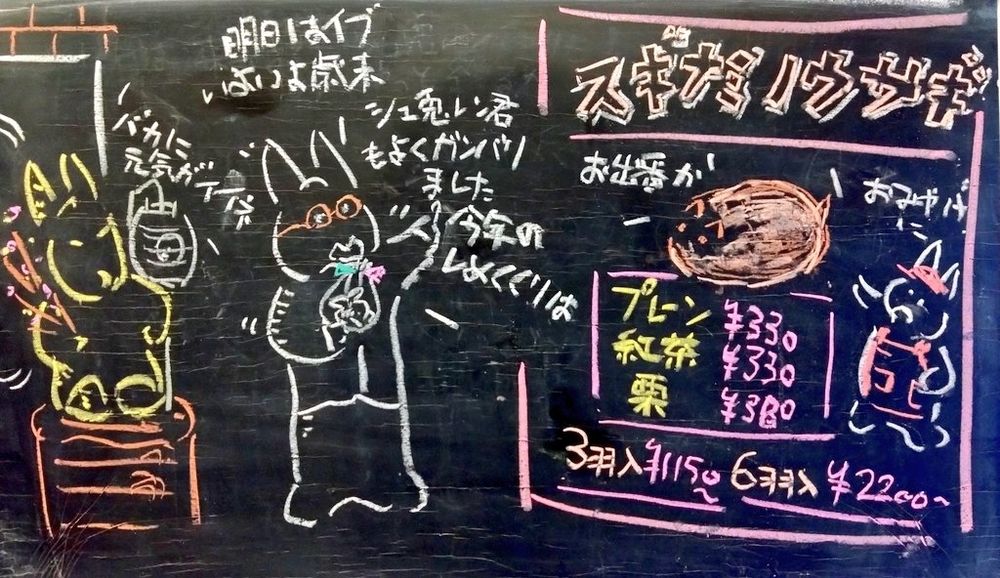 明日はイブ
はいよ歳末
バカに
元気が
シュ兎レン君
もよくガンバリ
ました
今年の
しめくくりは
スギナミノウサギ
お出番か
おみやげ
に
プレーン ¥330
紅茶 ¥330
栗 ¥380
3羽入 ¥1150~ 6羽入 ¥2200~